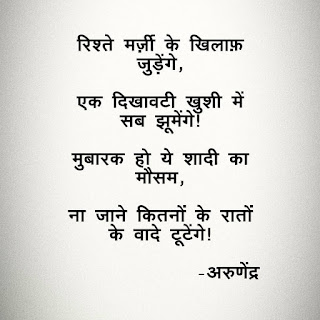 रिश्ते मर्ज़ी के खिलाफ़
जुड़ेंगे,
एक दिखावटी खुशी में
सब झूमेंगे!
मुबारक हो ये शादी का
मौसम,
ना जाने कितनों के रातों
के वादे टूटेंगे!
-अरुणेंद्र